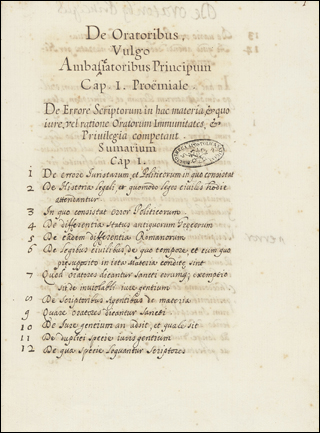 De Oratoribus,
Vulgo
Ambassatoribus Principum
Cap. I. Proëmiale.
De Errore Scriptorum in hac materia, & quo
iure, vel ratione Oratorum Immunitates, &
Priuilegia competant
Sumarium
Cap I.
1 De errore Iuristarum, et Politicorum in quo consistat
2 De Materia legali, et quomodo leges ciuiles hodie
attendantur
3 In quo consistat error Politicorum
4 De differentia status antiquorum
5 De eadem differentia Romanorum
6 De legibus ciuilibus, de quo tempore, et
presupposito in ista materia condite sint
7 Quod oratores dicantur sancti eorumq; exemptio
sit de inuiolabili iure gentium
8 De Scriptoribus agentibus de materia
9 Quare oratores dicantur sancti
10 De Iure gentium an adsit, et quale sit
11 De duplici specie iuris gentium
12 De qua specie loquantur scriptores